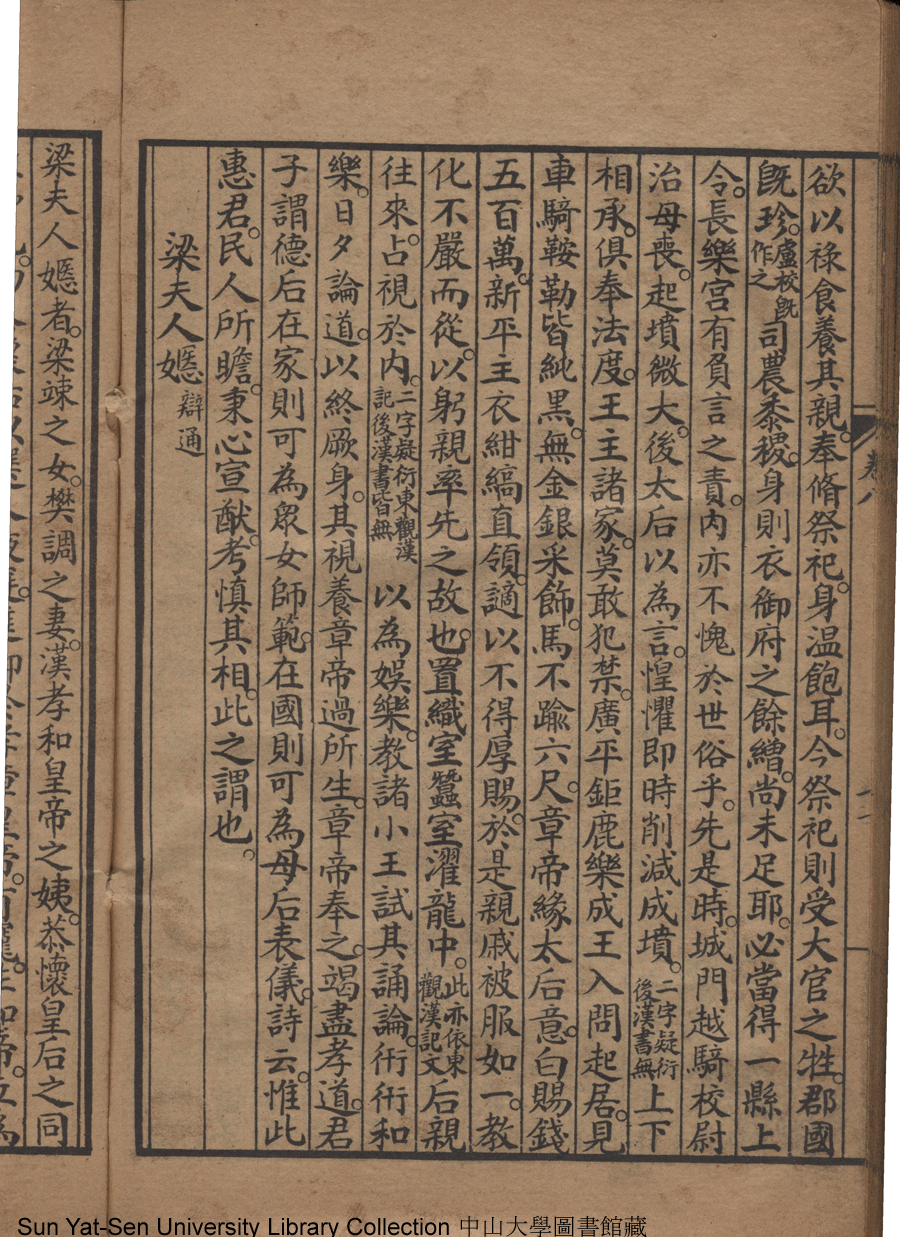 欲以祿食養其親。奉脩祭祀。身温飽耳。今祭祀則受大官之牲。郡國
旣珍。盧校旣作之司農黍稷。身則衣御府之餘繒。尚未足耶。必當得一縣上
令。長樂宮有負言之責。内亦不愧於世俗乎。先是時。城門越騎校尉
治母喪。起墳微大。後太后以為言。惶懼即時削減成墳。二字疑衍後漢書無上下
相承。俱奉法度。王主諸家。莫敢犯禁。廣平鉅鹿樂成王入問起居。見
車騎鞍勒皆純黑。無金銀采飾。馬不踰六尺。章帝緣太后意。白賜錢
五百萬。新平主衣紺縞直領。讁以不得厚賜。於是親戚被服如一。教
化不嚴而從。以躬親率先之故也。置織室蠶室濯龍中。此亦依東觀漢記文后親
往來。占視於内。二字疑衍東觀漢記後漢書皆無以為娛樂。教諸小王試其誦論。衎衎和
樂。日夕論道。以終厥身。其視養章帝過所生。章帝奉之。竭盡孝道。君
子謂德后在家則可為眾女師範。在國則可為母后表儀。詩云。惟此
惠君。民人所瞻。秉心宣猷。考慎其相。此之謂也。
梁夫人嫕辯通
卷八
梁夫人嫕者。梁竦之女。樊調之妻。漢孝和皇帝之姨。恭懷皇后之同
Sun Yat-Sen University Library Collection 中山大學圖書館藏